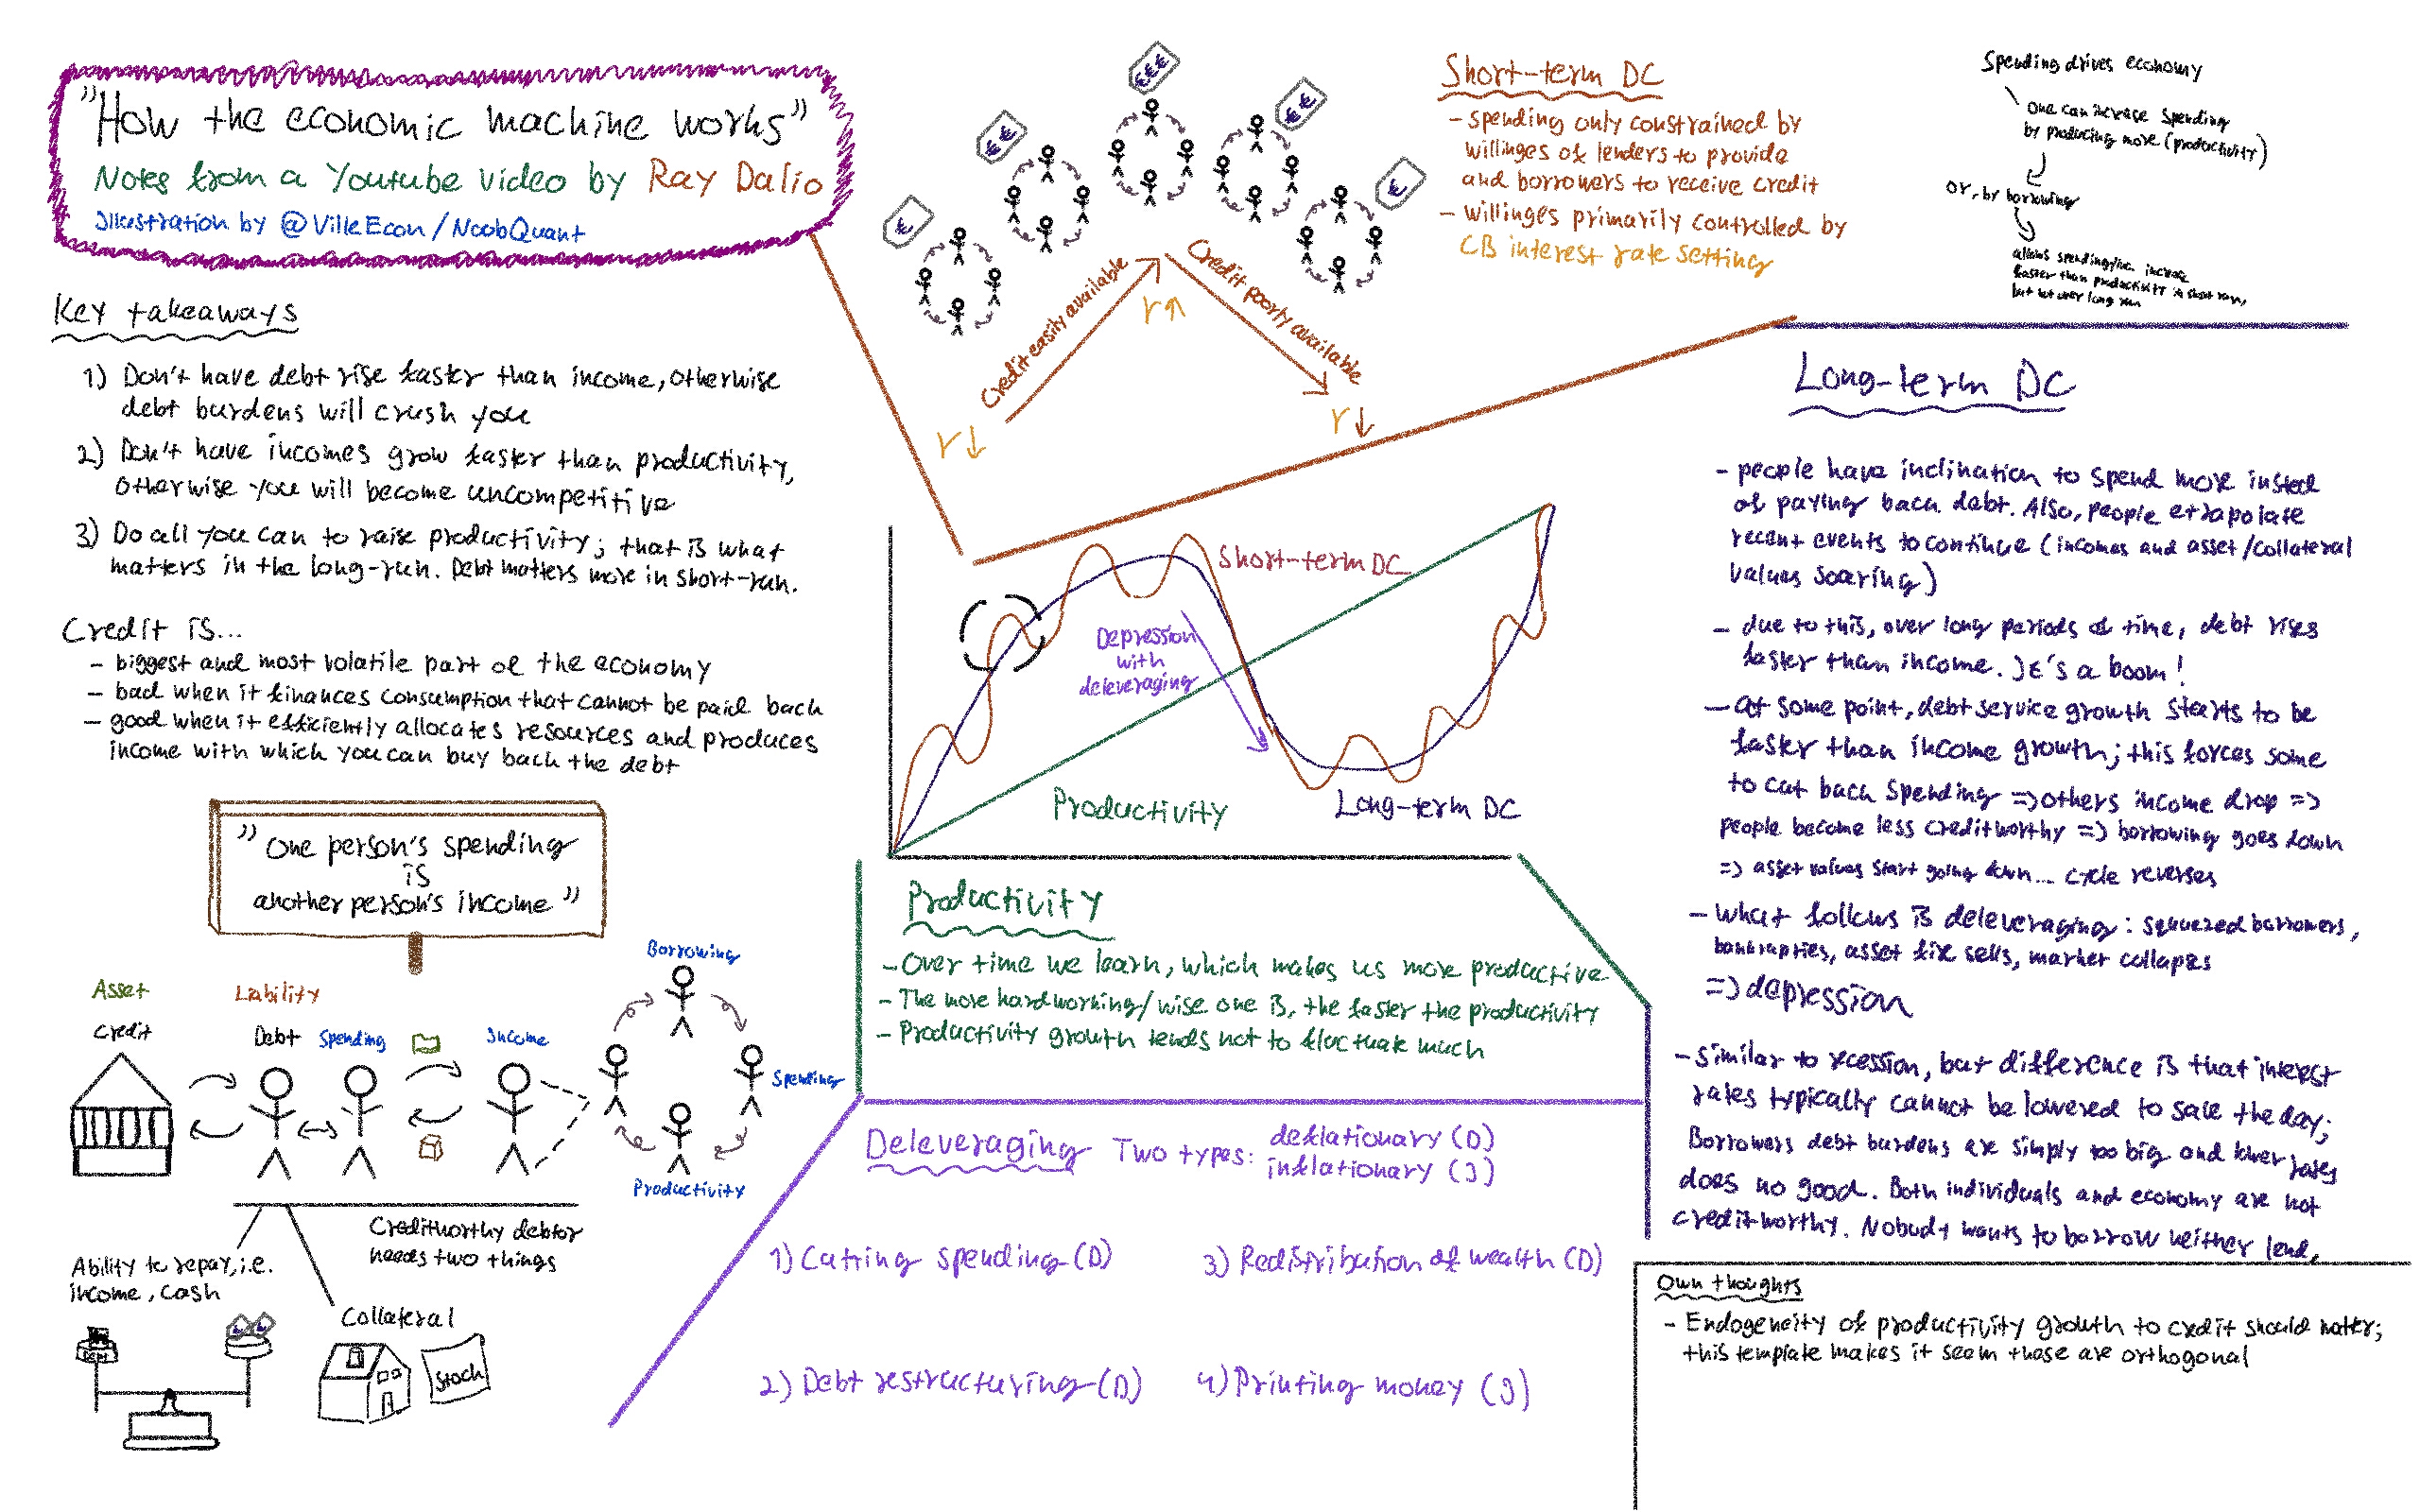 "How the economic machine works"
Notes from a Youtube video by Ray Dalio
Illustration by @VilleEcon/NoobQuant
Key takeaways
1) Don't have debt rise faster than income, otherwise
debt burdens will crush you
2) Don't have incomes grow faster than productivity,
otherwise you will become uncompetitive
3) Do all you can to raise productivity; that is what
matters in the long-run. Debt matters more in short-run.
Credit is...
- biggest and most volatile part of the economy
- bad when it finances consumption that cannot be paid back
- good when it efficiently allocates resources and produces
income with which you can buy back the debt
"One person's spending
is
another person's income"
Asset
Liability
Credit
Debt
Spending
Income
Borrowing
Spending
Productivity
Creditworthy debtor
needs two things
Ability to repay, i.e.
income, cash
€ €
Collateral
Stock
€
€€
€€€
€€
€
Credit easily available
Credit poorly available
r↓
r↑
r↓
Short-term DC
- spending only constrained by
willinges of lenders to provide
and borrowers to receive credit
- willinges primarily controlled by
CB interest rate setting
Spending drives economy
One can increase spending
by producing more (productivity)
or, by borrowing
allows spending/inc. increase
faster than productivity in short run,
but not over long run
Short-term DC
Depression
with
deleveraging
Productivity
Long-term DC
Productivity
- Over time we learn, which makes us more productive
- The more hardworking/wise one is, the faster the productivity
- Productivity growth tends not to fluctuate much
Deleveraging Two types: deflationary (D)
inflationary (I)
1) Cutting spending (D)
2) Debt restructuring (D)
3) Redistribution of wealth (D)
4) Printing money (I)
Long-term DC
- people have inclination to spend more insted
of paying back debt. Also, people etrapolate
recent events to continue (incomes and asset/collateral
values soaring)
- due to this, over long periods of time, debt rises
faster than income. It's a boom!
- at some point, debt service growth starts to be
faster than income growth; this forces some
to cut back spending => others income drop =>
people become less creditworthy => borrowing goes down
=> asset values start going down... cycle reverses
- What follows is deleveraging: squeezed borrowers,
bankrupties, asset fire sells, market collapses
=> depression
- Similar to recession, but difference is that interest
rates typically cannot be lowered to save the day;
Borrowers debt burdens are simply too big and lower rates
does no good. Both individuals and economy are not
creditworthy. Nobody wants to borrow neither lend.
Own thoughts
- Endogeneity of productivity growth to credit should matter;
this template makes it seem those are orthogonal